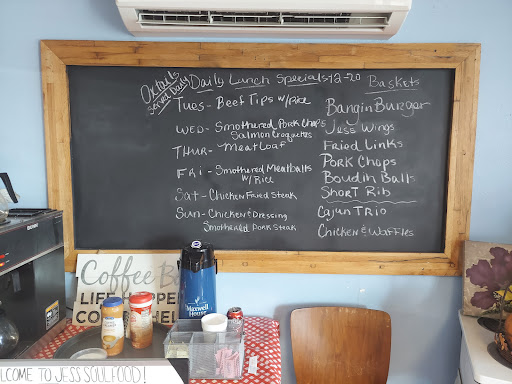 Oxtails
Served Daily
Daily Lunch Specials 12-20
Tues- Beef Tips w/Rice
Wed- Smothered Pork Chops
Salmon Croquettes
Thur- Meatloaf
Fri- Smothered Meatballs
w/Rice
Sat- Chicken Fried Steak
Sun- Chicken & Dressing
Smothered Pork Steak
Baskets
Bangin Burger
Jess Wings
Fried Links
Pork Chops
Boudin Balls
Short Rib
Cajun Trio
Chicken & Waffles
Coffee
Maxwell
House
BUNN
WELCOME TO JESS SOULFOOD!